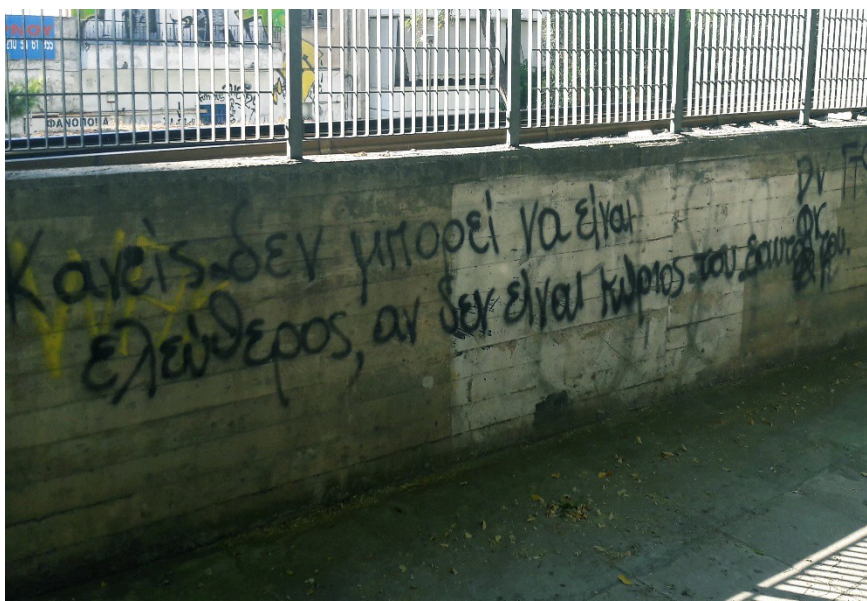 ΦΑΝΟΠΟΙΪΑ
Κανείς δεν μπορεί να είναι
ελεύθερος, αν δεν είναι κύριος του εαυτού του.